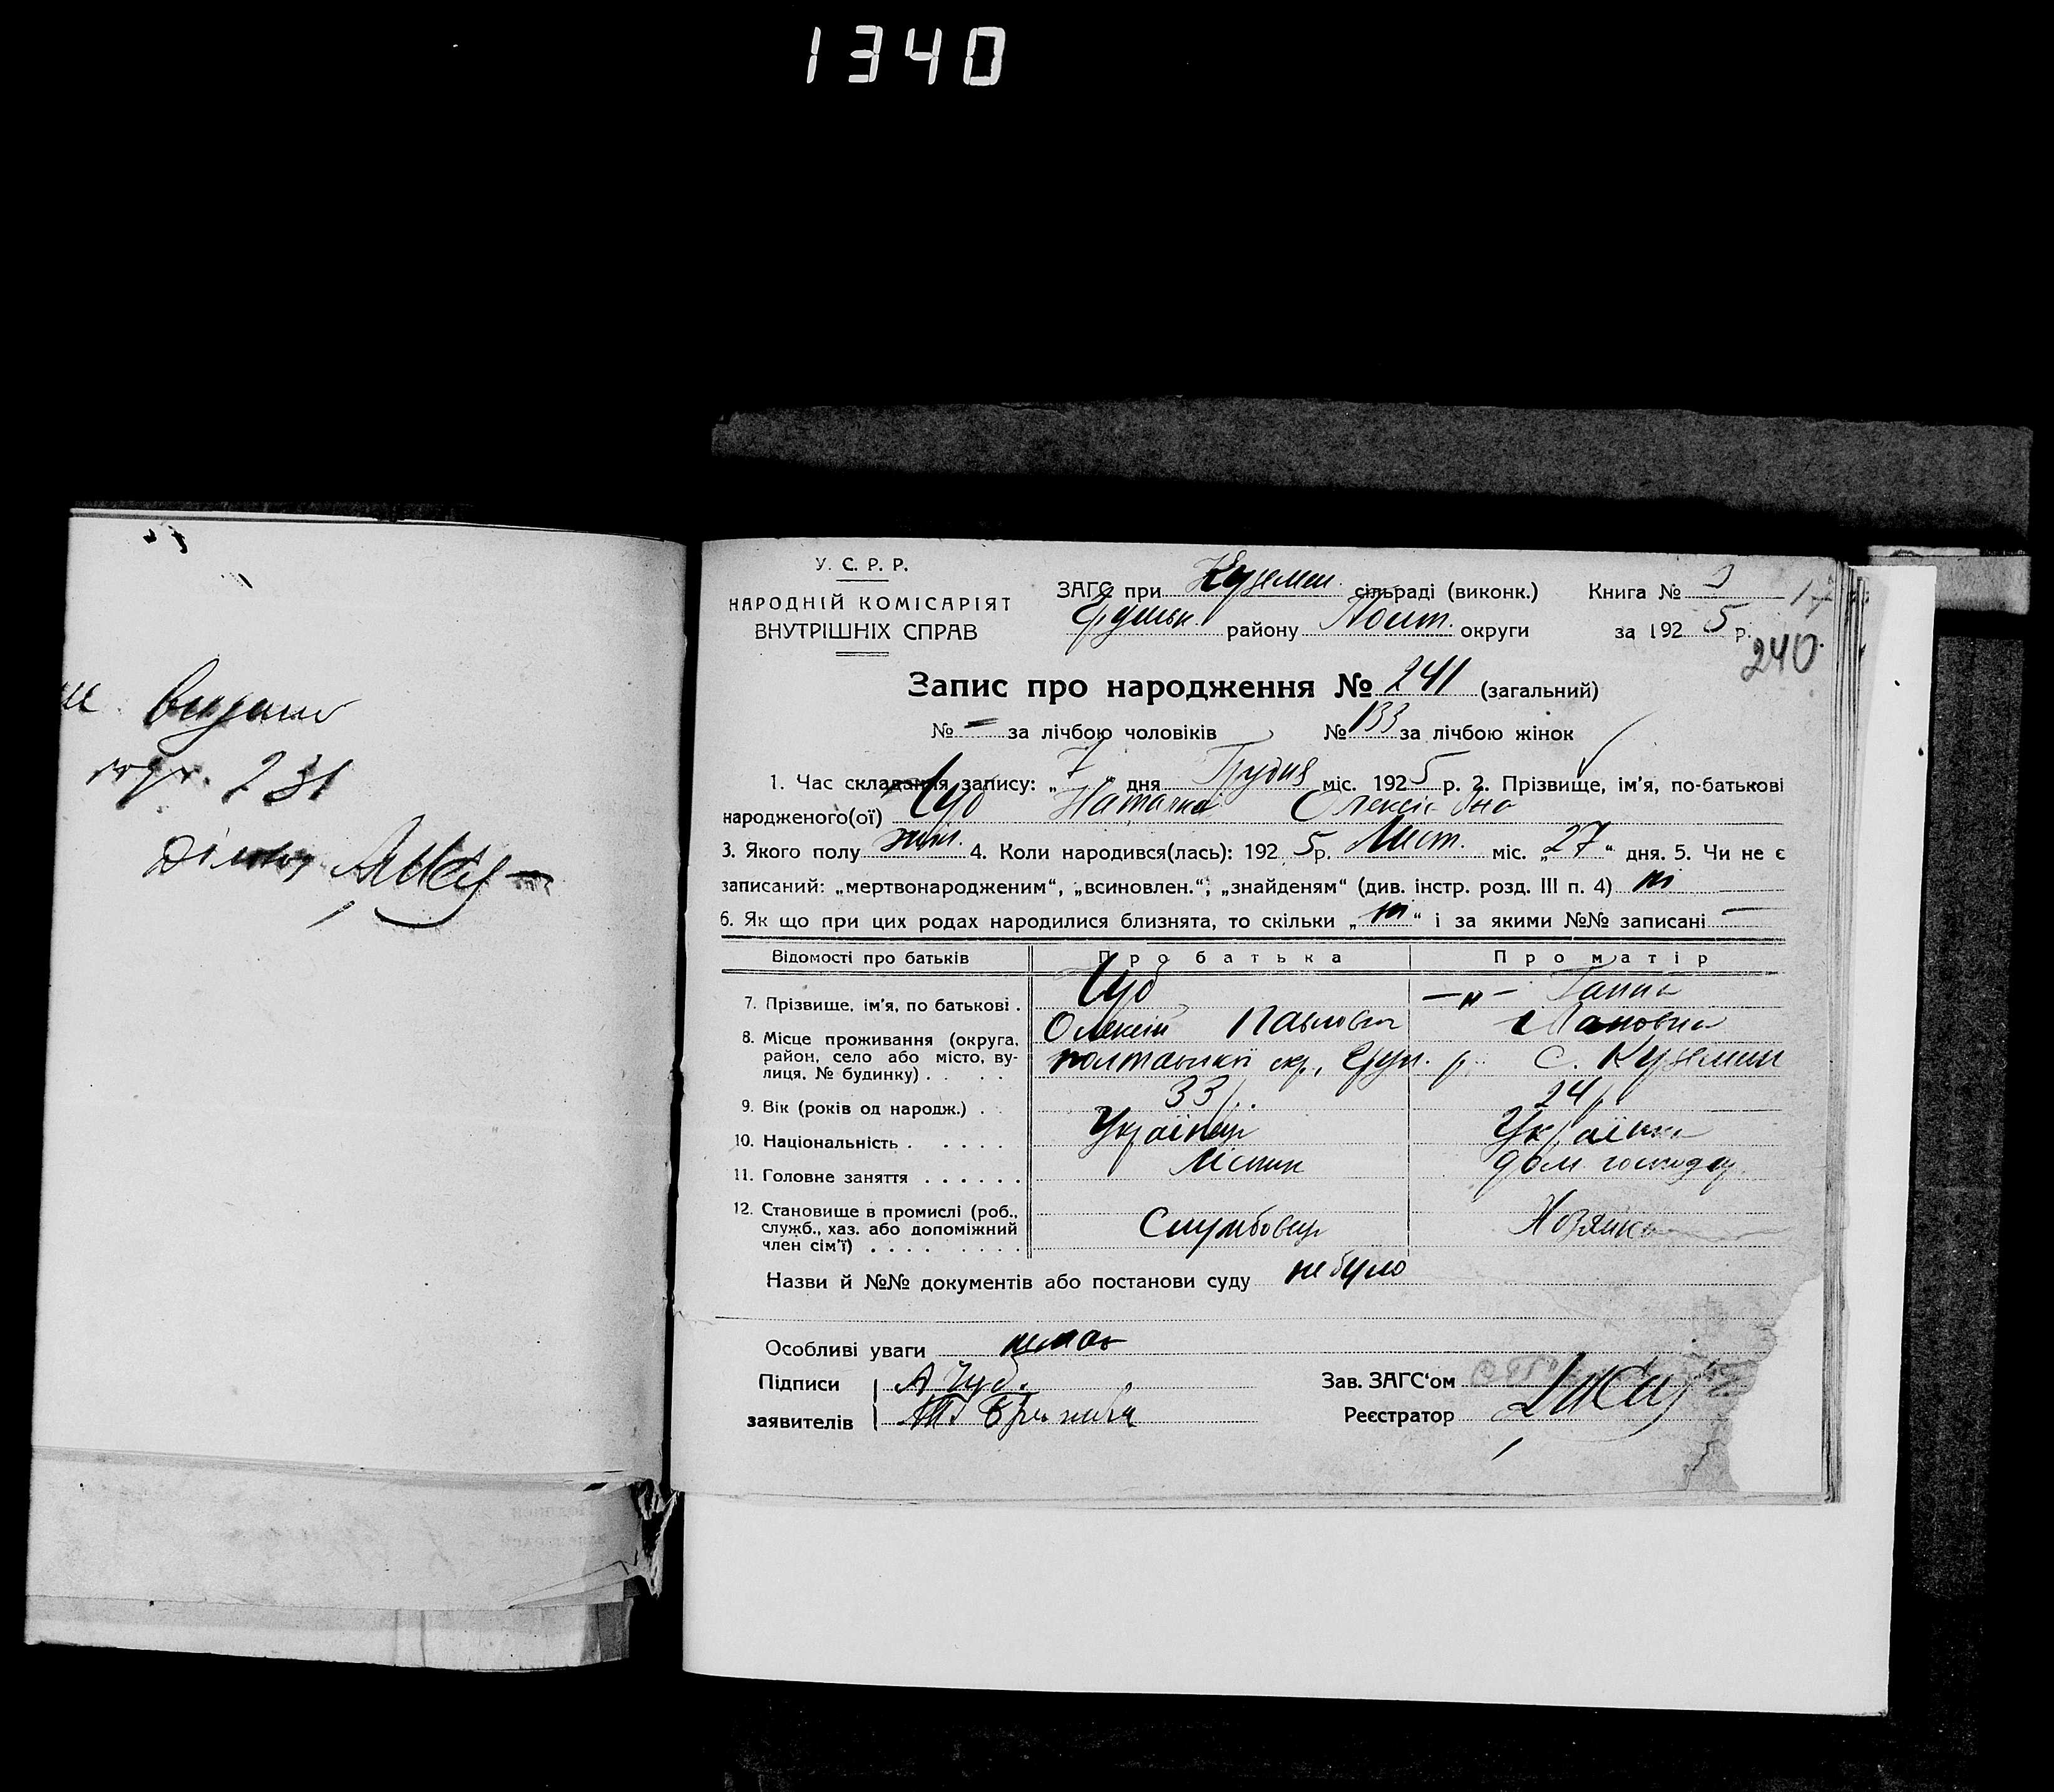 1340
видано
231
У. С. Р. Р.
НАРОДНІЙ КОМІСАРІЯТ
ВНУТРІШНІХ СПРАВ
ЗАГС при Куземен. сільраді (виконк.) Книга №
району Полт. округи за 1925 р.
17
240
Запис про народження № 241 (загальний)
№ – за лічбою чоловіків № 133 за лічбою жінок
1. Час складання запису: „7“ дня Грудня міс. 1925 р. 2. Прізвище, ім'я, по-батькові
народженого(ої) Чуб Наталка Олексіївна
3. Якого полу жін. 4. Коли народився(лась): 1925 р. Лист. міс. „27“ дня. 5. Чи не є
записаний: „мертвонародженим“, „всиновлен.“, „знайденям“ (див. інстр. розд. III п. 4) ні
6. Як що при цих родах народилися близнята, то скільки „ні“ і за якими №№ записані –
Відомості про батьків Про батька Про матір
7. Прізвище, ім'я, по батькові . Чуб Олексій Павлович –„– Ганна
8. Місце проживання (округа, район, село або місто, вулиця, № будинку) . . . . полтавської окр., р. с. Куземин
9. Вік (років од народж.) . . 33 р. 24 р.
10. Національність . . . . . Українець Українка
11. Головне заняття . . . . . . дом. господар.
12. Становище в промислі (роб., служб., хаз. або допоміжний член сім'ї) . . . . . . . . Службовець Хозяйка
Назви й №№ документів або постанови суду не було
Особливі уваги немає
Підписи А Чуб. Зав. ЗАГС'ом
заявителів Реєстратор